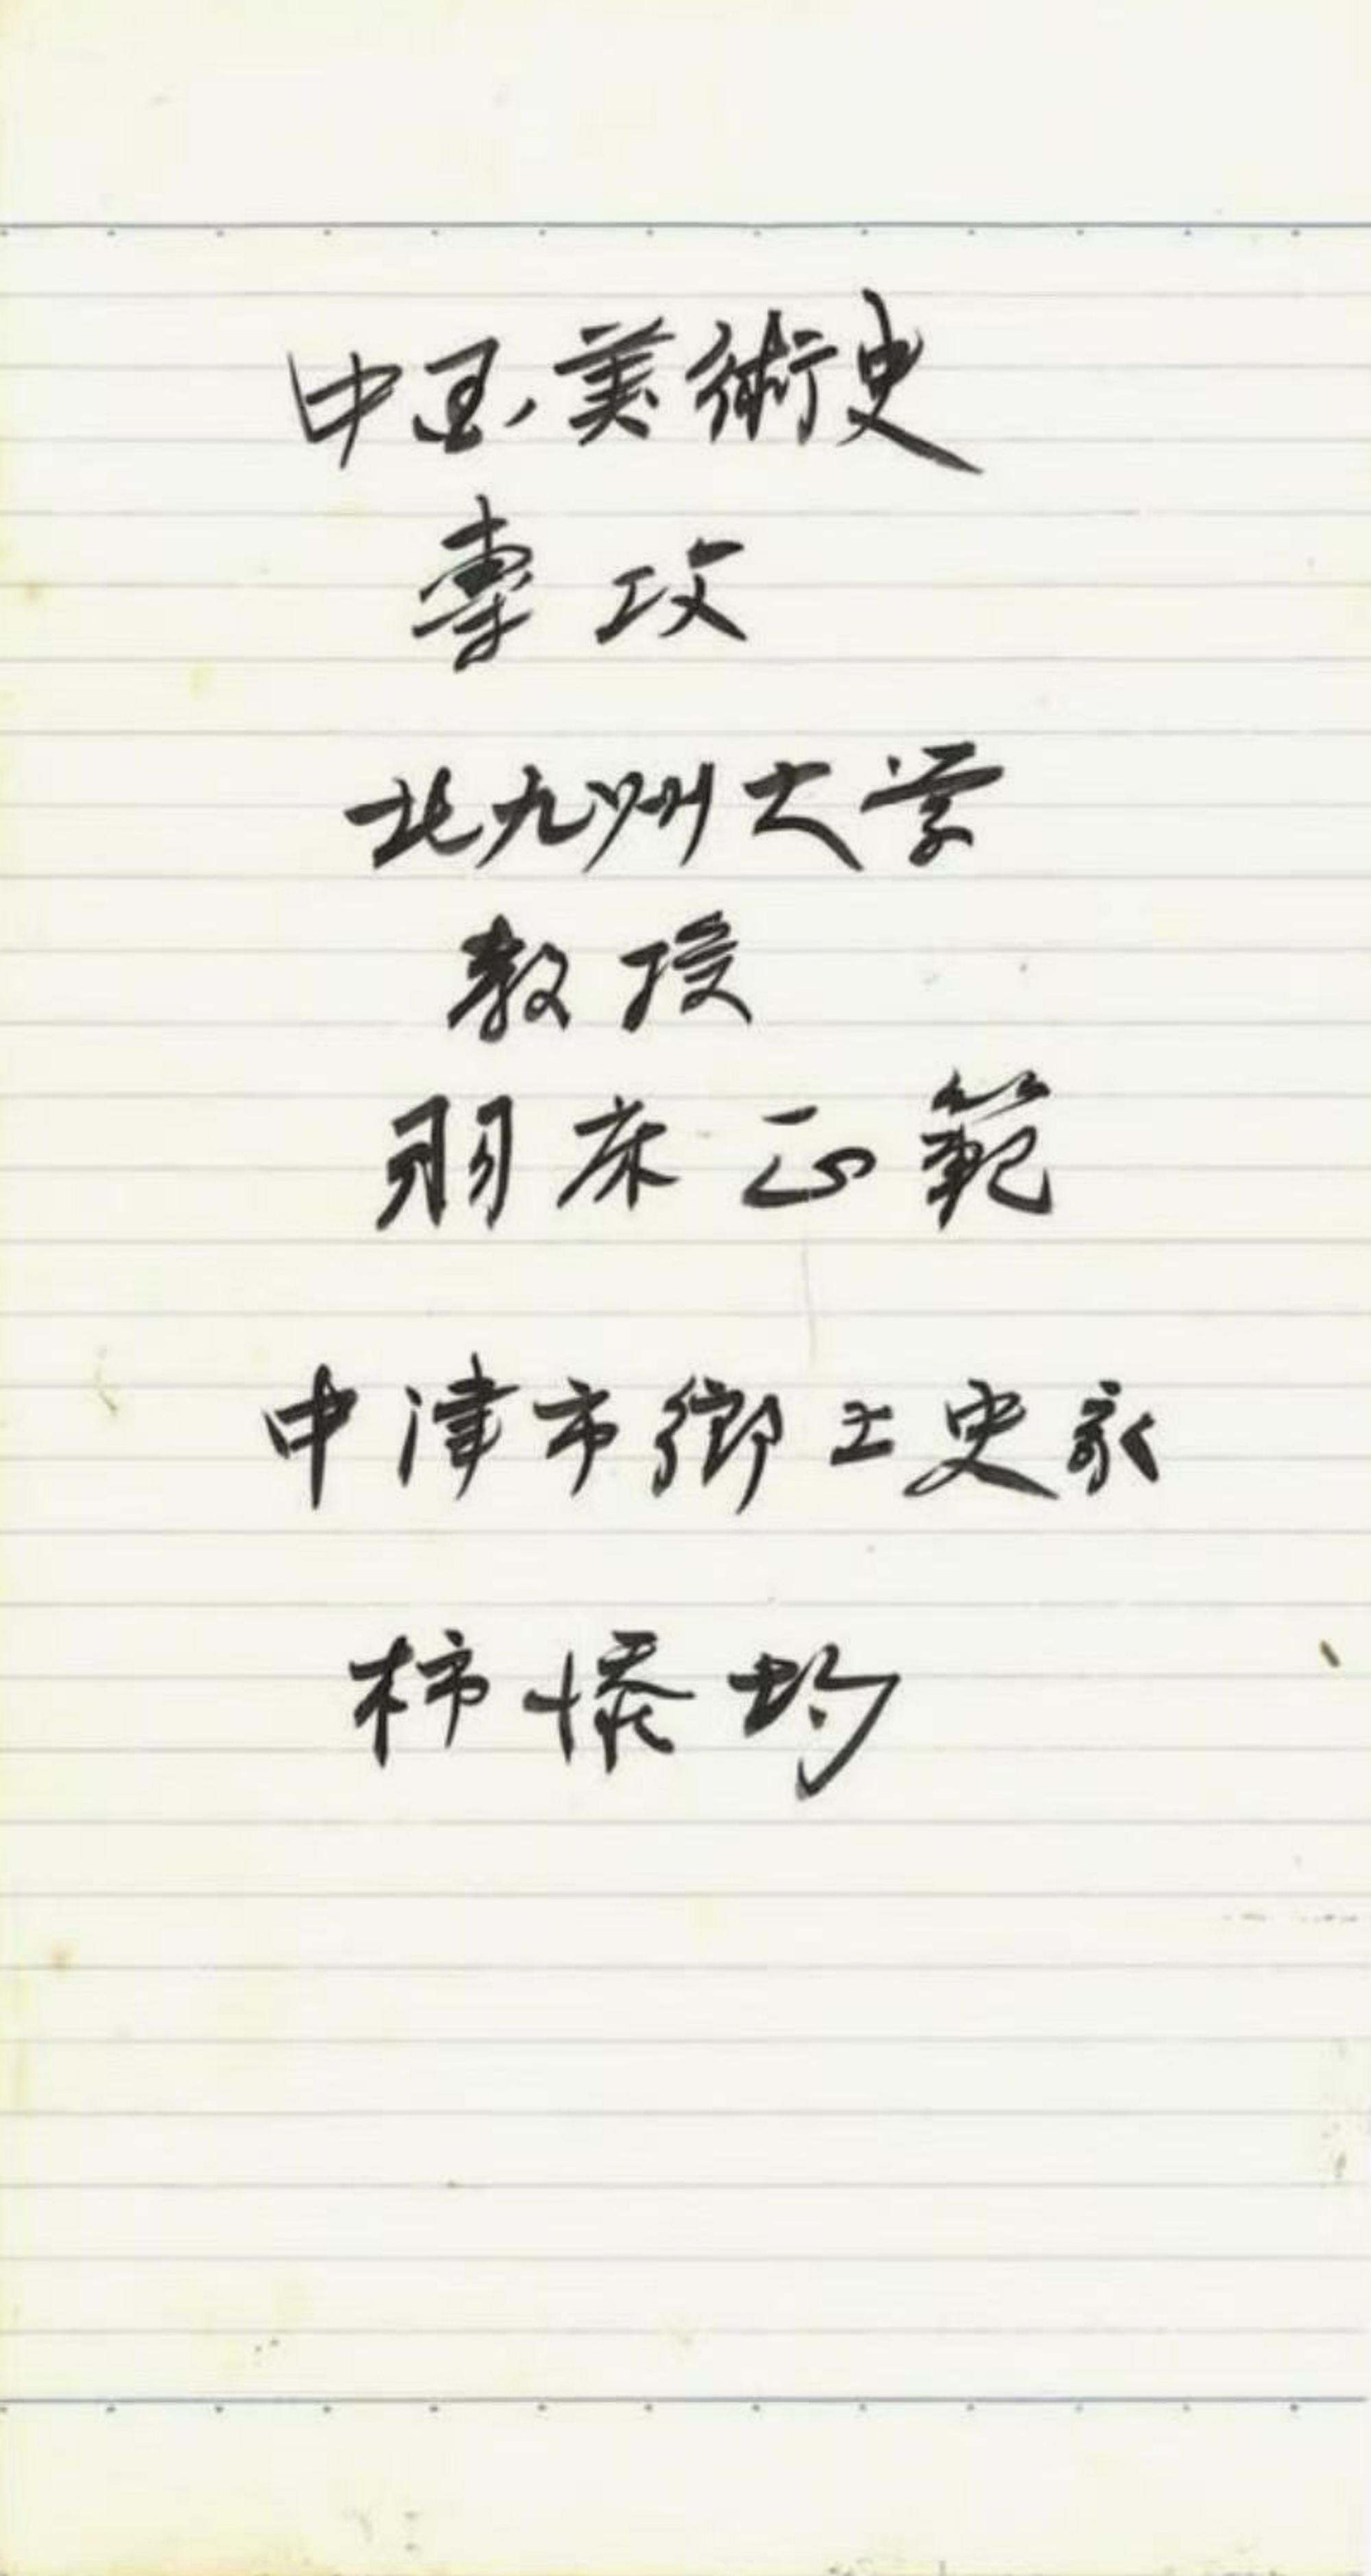 中国美術史
専攻
北九州大学
教授
羽床正範
中津市郷土史家